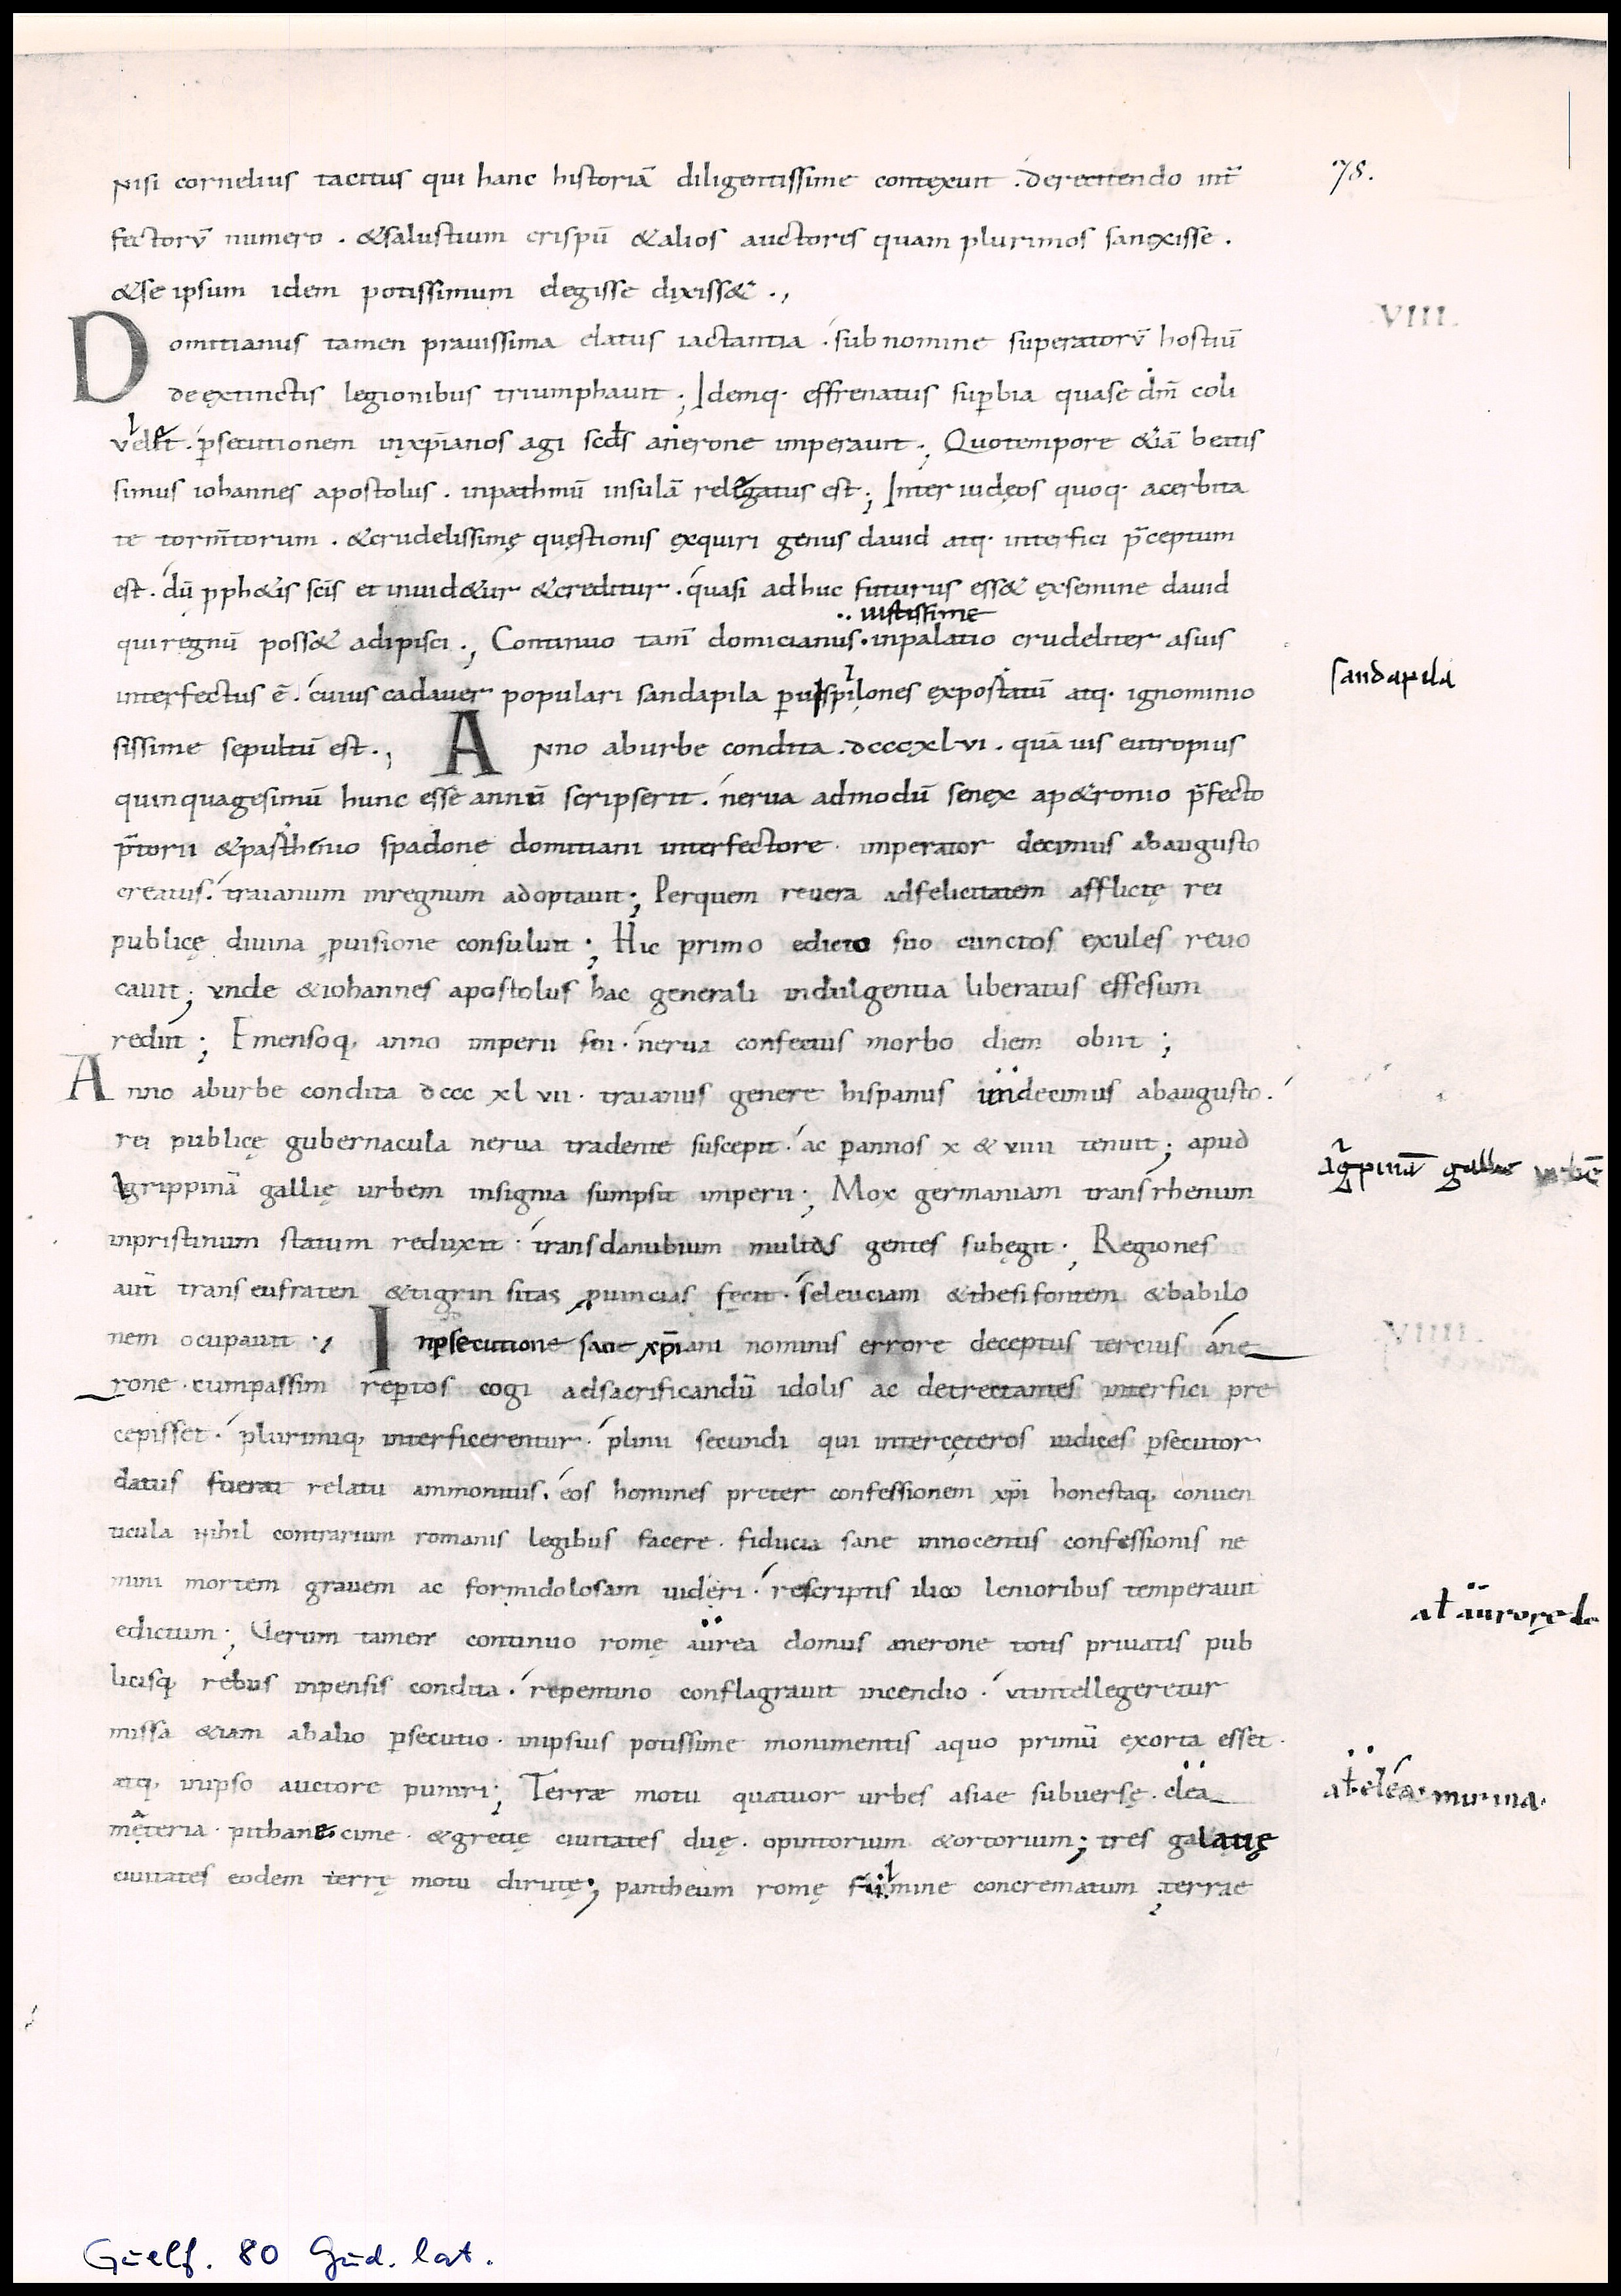 78.
Nisi cornelius tacitus qui hanc historiā diligentissime contexuit . de reticendo int̄
fectorū numero . &salustium crispū &alios auctores quam plurimos sanxisse .
&se ipsum idem potissimum elegisse dixiss& .,
VIII.
Domitianus tamen prauissima elatus iactantia . sub nomine superatorū hostiū
de extinctis legionibus triumphauit ; Idemq· effrenatus suꝑbia quase dm̄ coli
vellet . ꝑsecutionem inxp̄ianos agi scd̄s anerone imperauit ; Quotempore &iā beatis
simus iohannes apostolus . inpathmū insulā relegatus est ; Inter iudęos quoq· acerbita
te torm̄torum . &crudelissimę quęstionis exquiri genus dauid atq· interfici p̄ceptum
est . dū pph&is scīs et inuid&ur &creditur . quasi adhuc futurus ess& exsemine dauid
.. iustissime
qui regnū poss& adipisci ., Continuo tam̄ domicianus . inpalatio crudeliter asuis
interfectus ē . cuius cadauer populari sandapila ꝑ uispilones expostatū atq· ignominio
sandapila
sissime sepultū est ., Anno aburbe condita . dcccxlvi . quā uis eutropius
quinquagesimū hunc esse annū scripserit . nerua admodū senex ap&ronio p̄fecto
p̄torii &pasthenio spadone domitiani interfectore · imperator decimus abaugusto
creatus . traianum inregnum adoptauit ; Perquem reuera adfelicitatem afflictę rei
publicę diuina ꝓuisione consuluit ; Hic primo edicto suo cunctos exules reuo
cauit ; vnde &iohannes apostolus hac generali indulgentia liberatus effesum
rediit ; Emensoq· anno imperii sui · nerua confectus morbo diem obiit ;
Anno aburbe condita dccc xl vii · traianus genere hispanus undecimus abaugusto .
rei publicę gubernacula nerua tradente suscepit · ac ꝑannos x & viiii tenuit ; apud
Agrippinā gallię urbem insignia sumpsit imperii ; Mox germaniam trans rhenum
agr̄pinā gallię urbē
inpristinum statum reduxit : trans danubium multas gentes subęgit ; Regiones
aut̄ trans eufraten &tigrin sitas ꝓuincias fecit · seleuciam &thesifontem &babilo
nem ocupauit ., Inꝑsecutione sane xp̄iani nominis errore deceptus tercius ane
VIIII.
rone · cum passim reꝑtos cogi adsacrificandū idolis ac detrectantes interfici pre
cepisset · plurimiq· interficerentur · plinii secundi qui intercęteros iudices ꝑsecutor
datus fuerat relatu ammonitus . eos homines preter confessionem xp̄i honestaq· conuen
ticula nihil contrarium romanis legibus facere · fiducia sane innocentis confessionis ne
mini mortem grauem ac formidolosam uideri · rescriptis ilico lenioribus temperauit
edictum ; Verum tamen continuo romę aurea domus anerone totis priuatis pub
licisq· rebus inpensis condita . repentino conflagrauit incendio · vtintellegeretur
missa &iam abalio ꝑsecutio · inipsius potissime monumentis aquo primū exorta esset ·
atq· inipso auctore puniri ; Terrae motu quatuor urbes asiae subuersę . elea
męteria · pithane · cime · &gretię ciuitates duę · opuntorium &ortorium ; tres galatię
ciuitates eodem terrę motu dirutę ; pantheum romę fulmine concrematum ; terrae
Guelf. 80 Gud. lat.